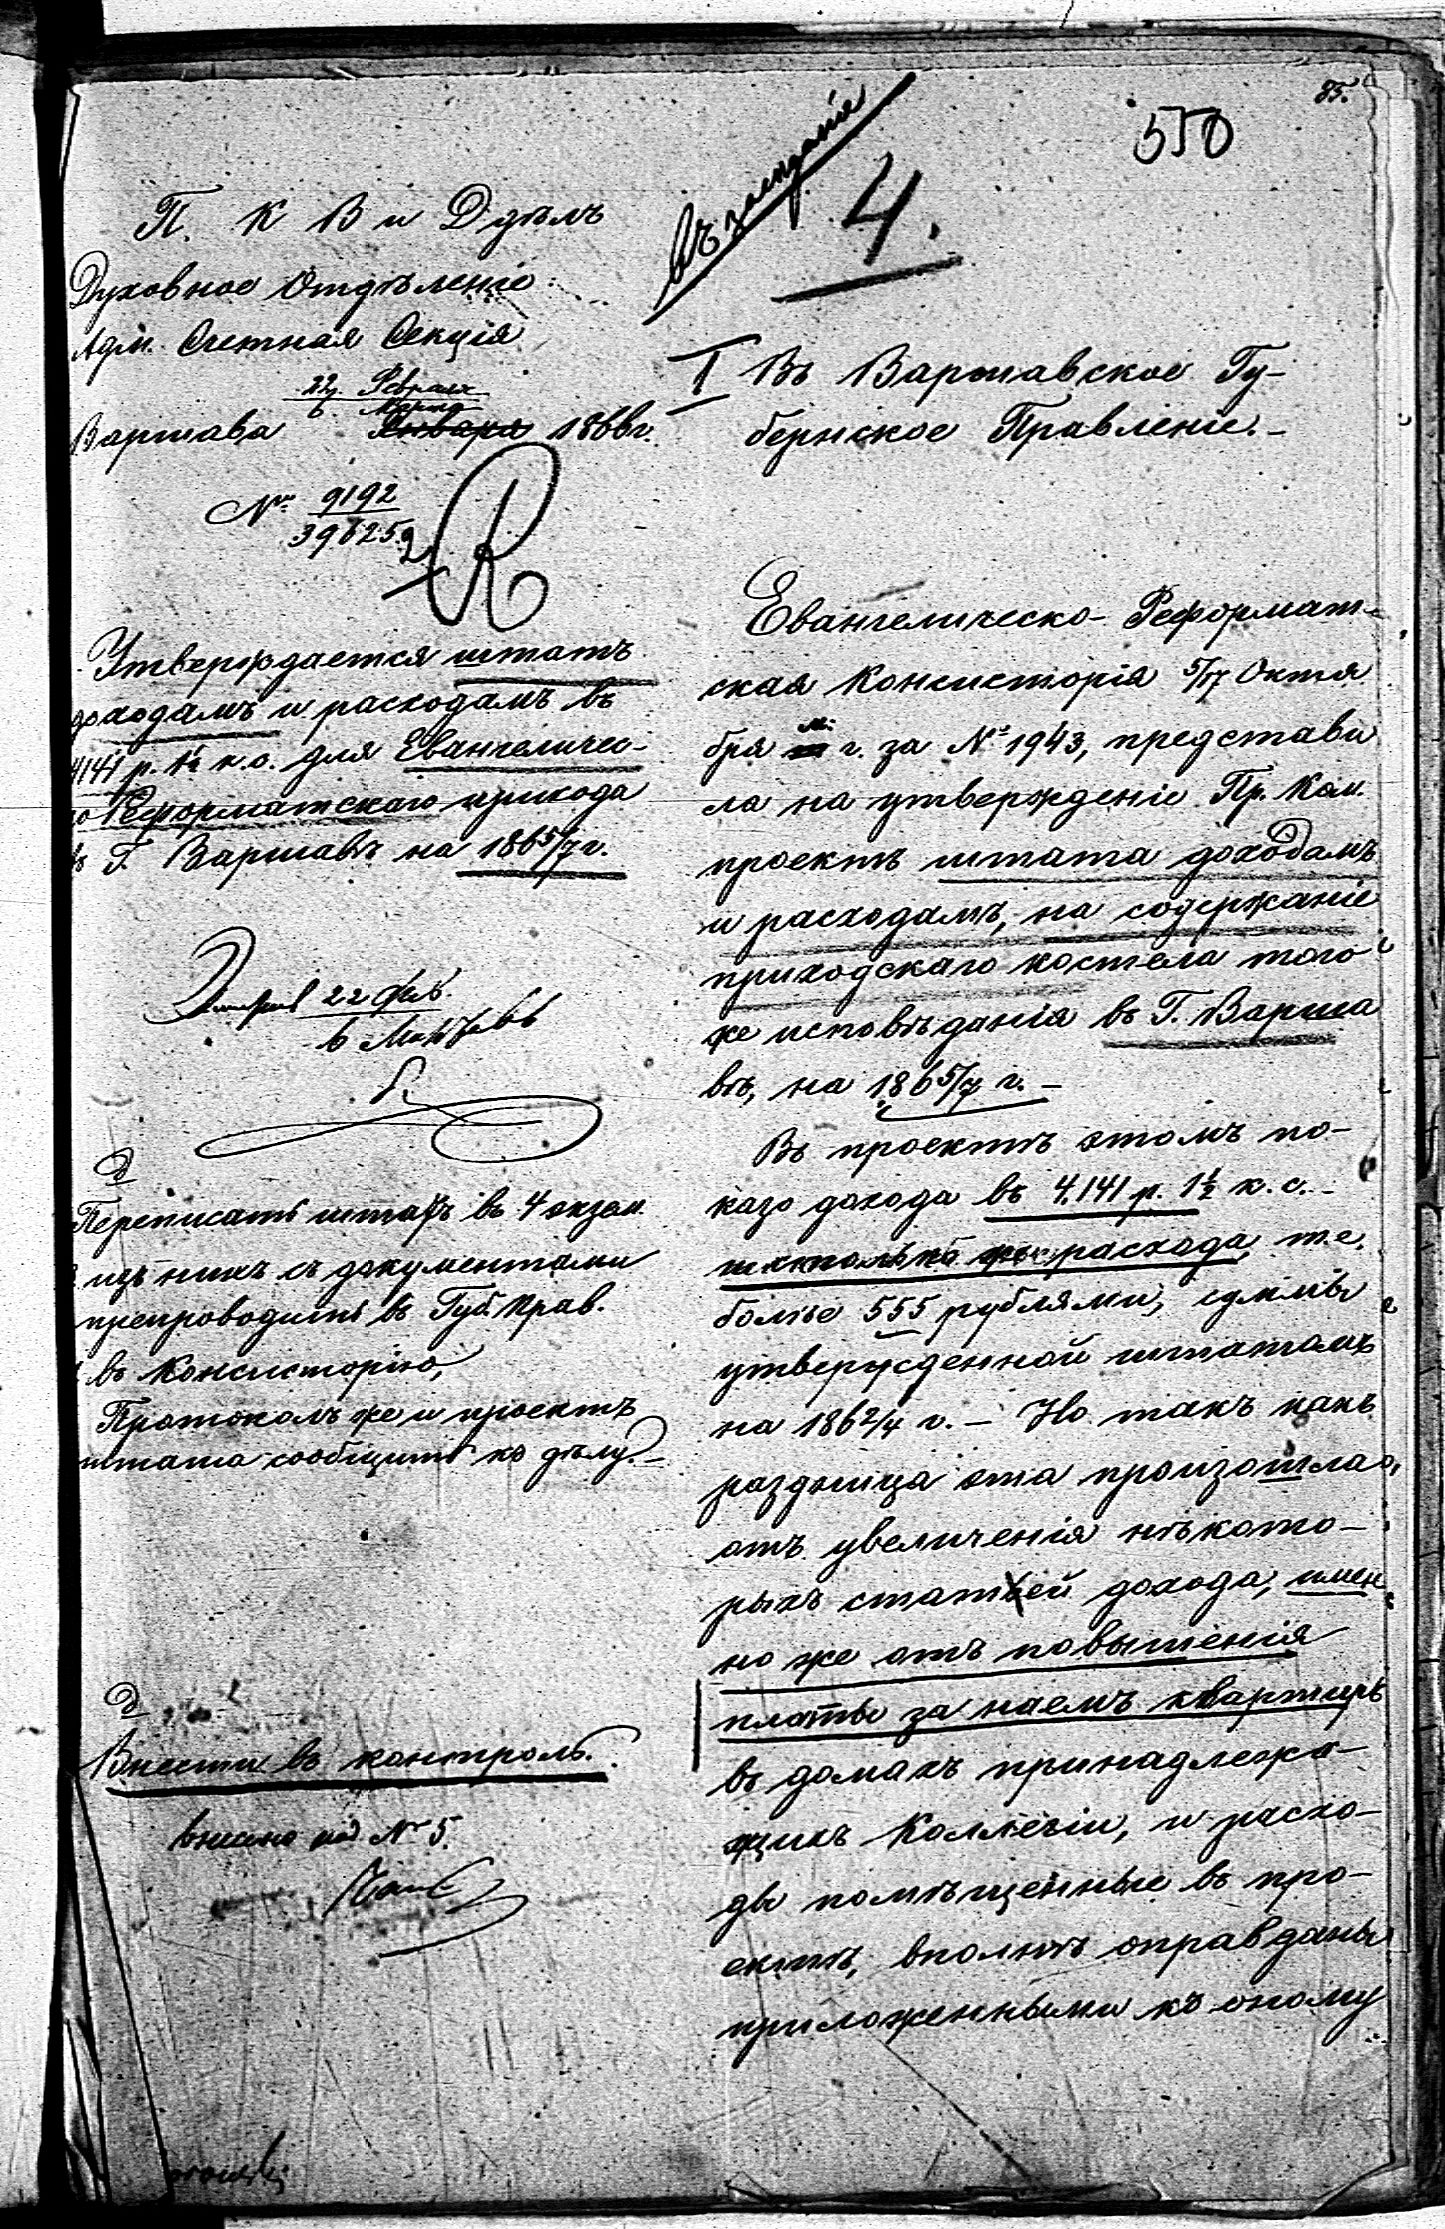 85.
550
Въ заседаніе
4.
П. К В и Д дѣлъ
Духовное Отдѣленіе
Адм. Счетная Секція
22 Февраля
6 Марта
Варшава Января 1866 г.
№ 9192
39625
2 R
Утверждается штатъ
доходамъ и расходамъ въ
4141 р. 1½ к.с. для Евангеличес-
ко Реформатскаго прихода
въ Г. Варшавѣ на 1865/7 г.
22 Фев.
6 Мар. 66
Переписать штатъ въ 4 экзем
изъ нихъ съ документами
препроводить въ Губ. Прав.
въ Консисторію,
Протоколъ же и проектъ
штата сообщить къ дѣлу. –
Внести въ контроль.
внесено под № 5.
I Въ Варшавское Гу-
бернское Правленіе. –
Евангелическо-Реформат-
ская Консисторія 5/17 Октя
бря м. г. за № 1943, представи
ла на утвержденіе Пр. Ком.
проектъ штата доходамъ
и расходамъ, на содержаніе
приходскаго костела того
же исповѣданія въ Г. Варша
вѣ, на 1865/7 г. –
Въ проектѣ этомъ по-
казо дохода въ 4.141 р. 1½ к. с. –
и столько же расхода, т.е.
болѣе 555 рублями, суммы
утвержденной штатомъ
на 1862/4 г. – Но такъ какъ
разница эта произошла
отъ увеличенія нѣкото-
рыхъ статей дохода, имен
но же отъ повышенія
платы за наемъ квартиръ
въ домахъ принадлежа-
щихъ Коллегіи, и расхо-
ды помѣщенные въ про-
ектѣ, вполнѣ оправданы
приложенными къ оному